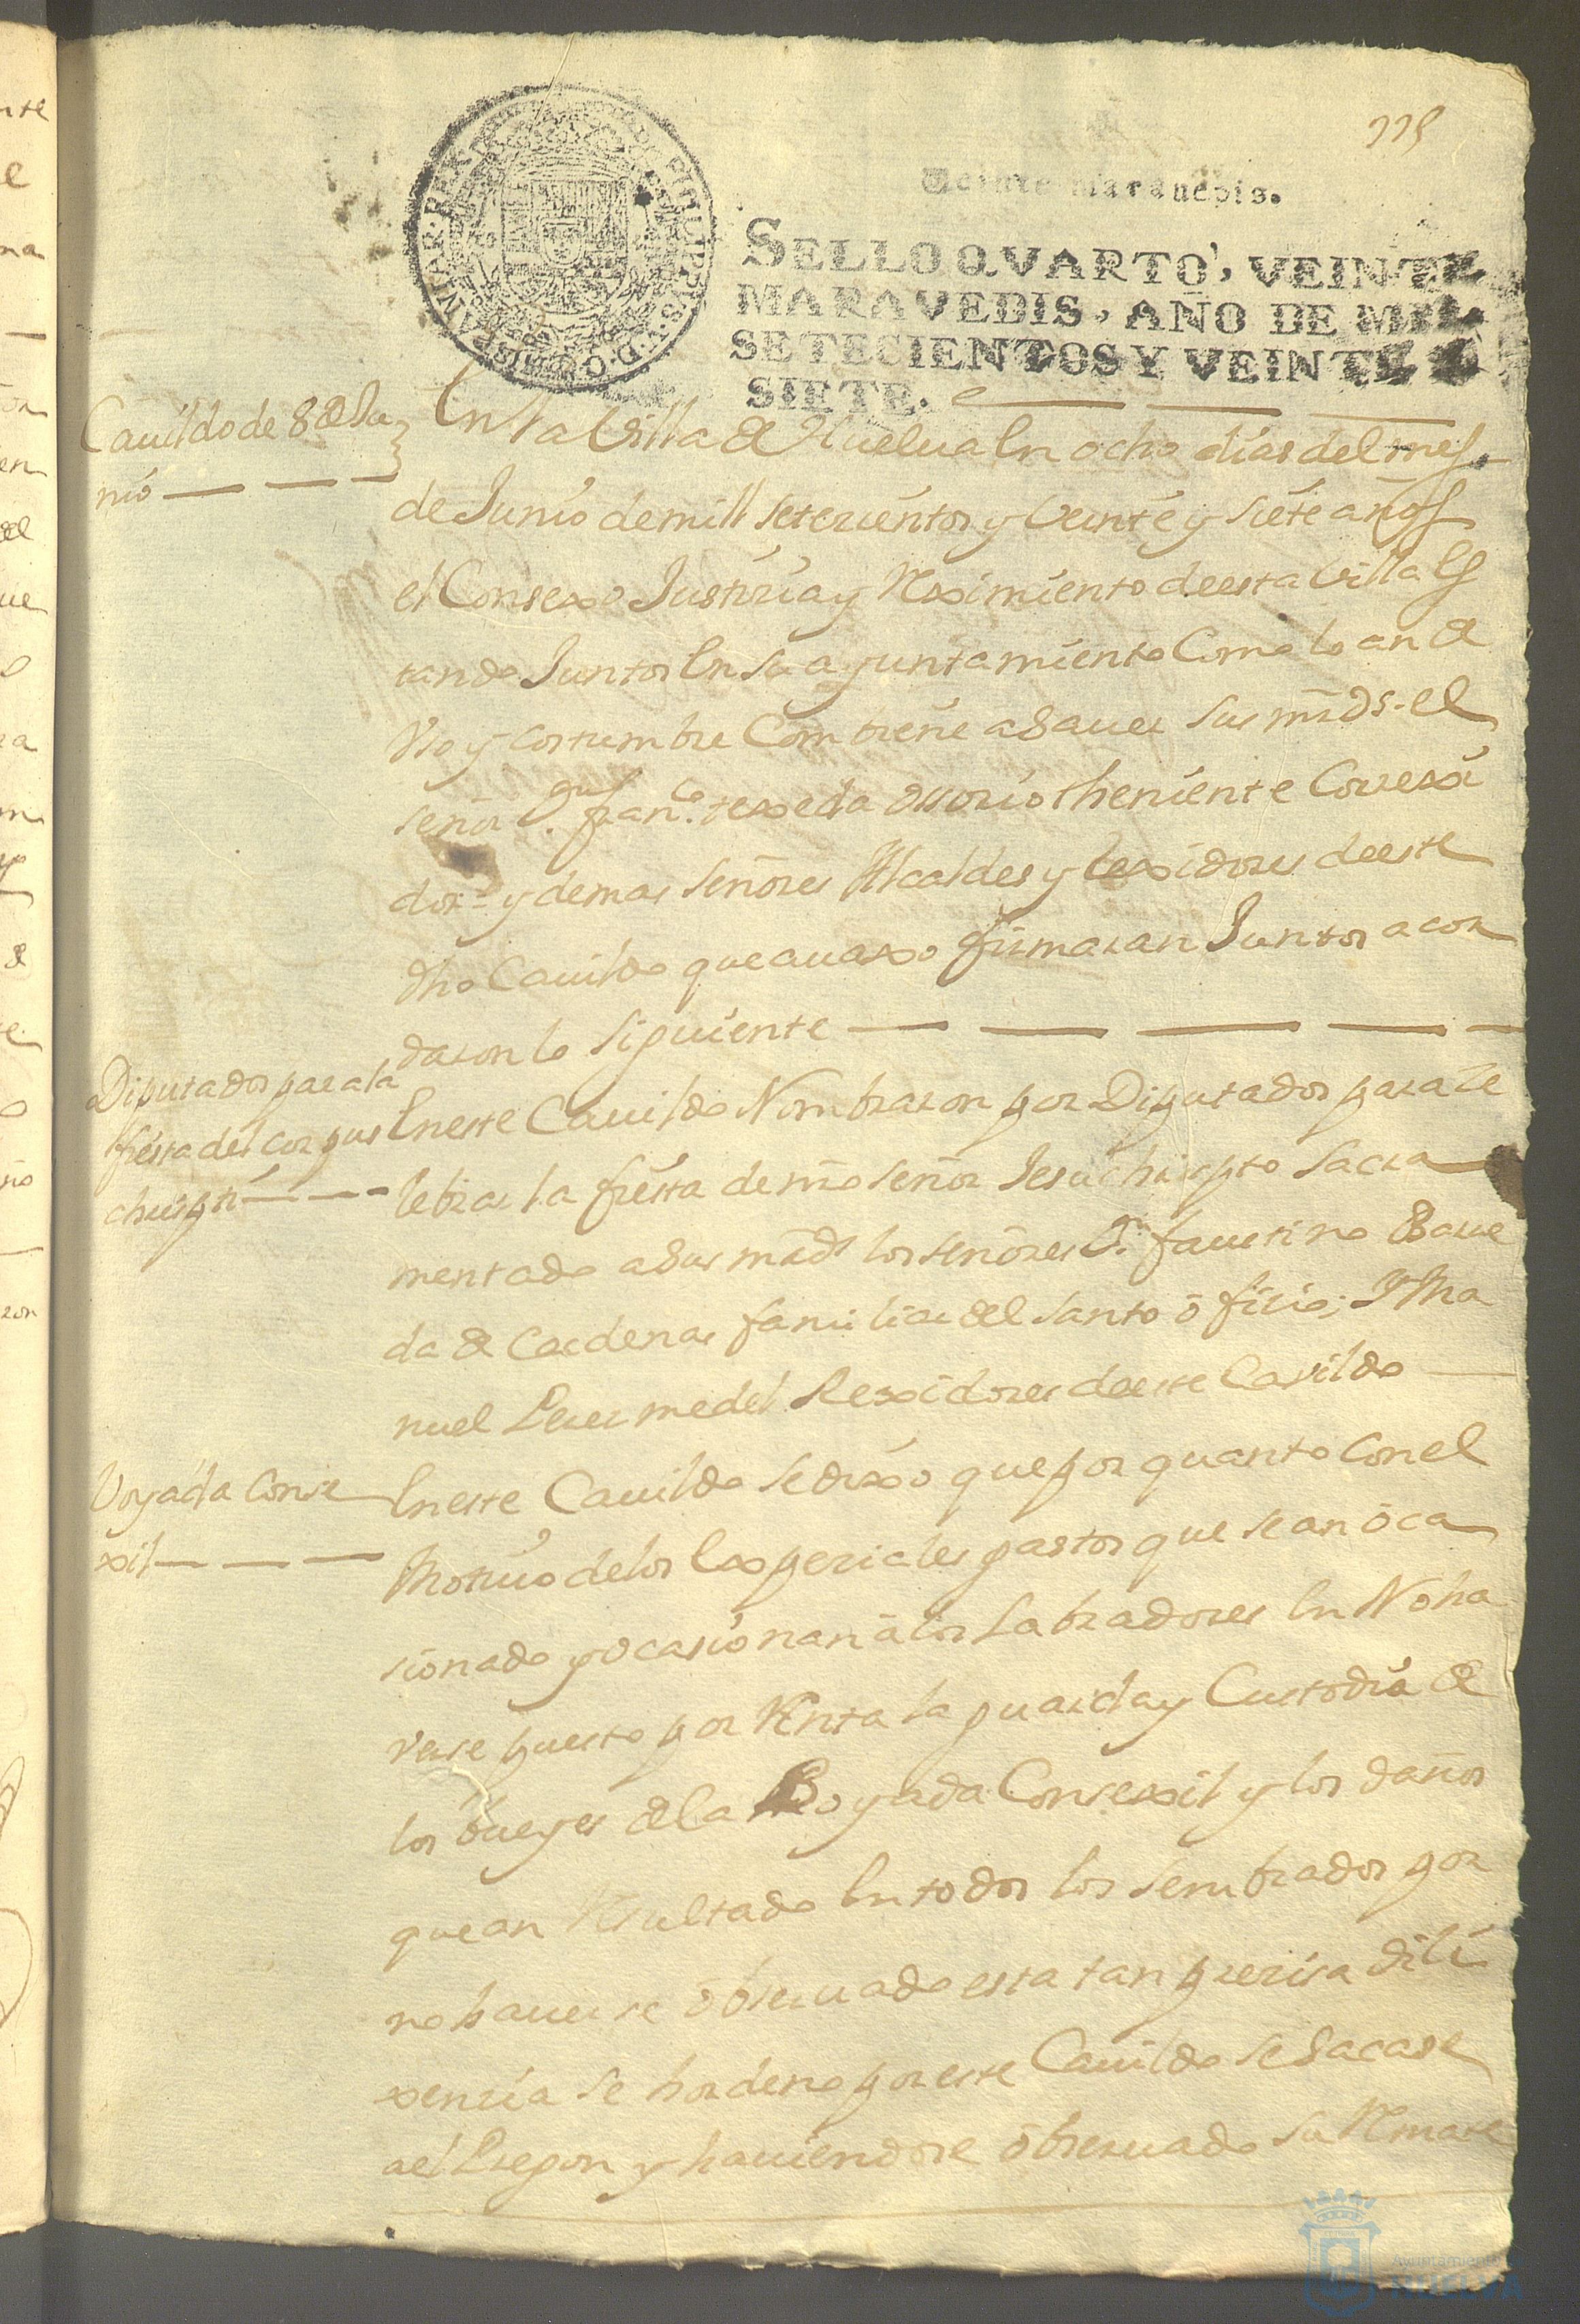 115
Veinte maravedis.
SELLO QVARTO, VEINTE
MARAVEDIS, AÑO DE MIL
SETECIENTOS Y VEINTE Y
SIETE.
Cauildo de 8 de Ju
nio
En la Villa de Huelua En ocho dias del mes
de Junio de mill setezientos y Veinte y siete años
el Consexo Justizia y Reximiento de esta Villa Es
tando Juntos En su ayuntamiento Como lo an de
Vso y costumbre Combiene a Sauer sus mrds. el
señor Dn. franco. texeda ossorio theniente Correxi
dor y demas señores Alcaldes y Rexidores de este
dho Cauildo que auaxo firmaran Juntos acor
daron lo siguiente
Diputados para la
fiesta del corpus
chripti
En este Cauildo Nombraron por Diputados para Ce
lebrar la fiesta de nro señor Jesuchripto Sacra
mentado a Sus mrds los señores Dn. faustino Barre
da de Cardenas familiar del santo ofizio; Y Ma
nuel Perez medel Rexidores de este Cavildo
Voyada Conse
xil
En este Cauildo se dixo que por quanto Con el
Motiuo de los Expeziales gastos que se an oca
sionado y ocasionan a los Labradores En No ha
verse puesto por Renta la guarda y Custodia de
los bueyes de la Boyada Consexil y los daños
que an Resultado En todos los sembrados por
no hauerse obseruado esta tan preziza dili
xenzia se hordeno por este Cauildo se Sacase
al Pregon y hauiendose obseruado su Remate
Ayuntamiento de
HUELVA